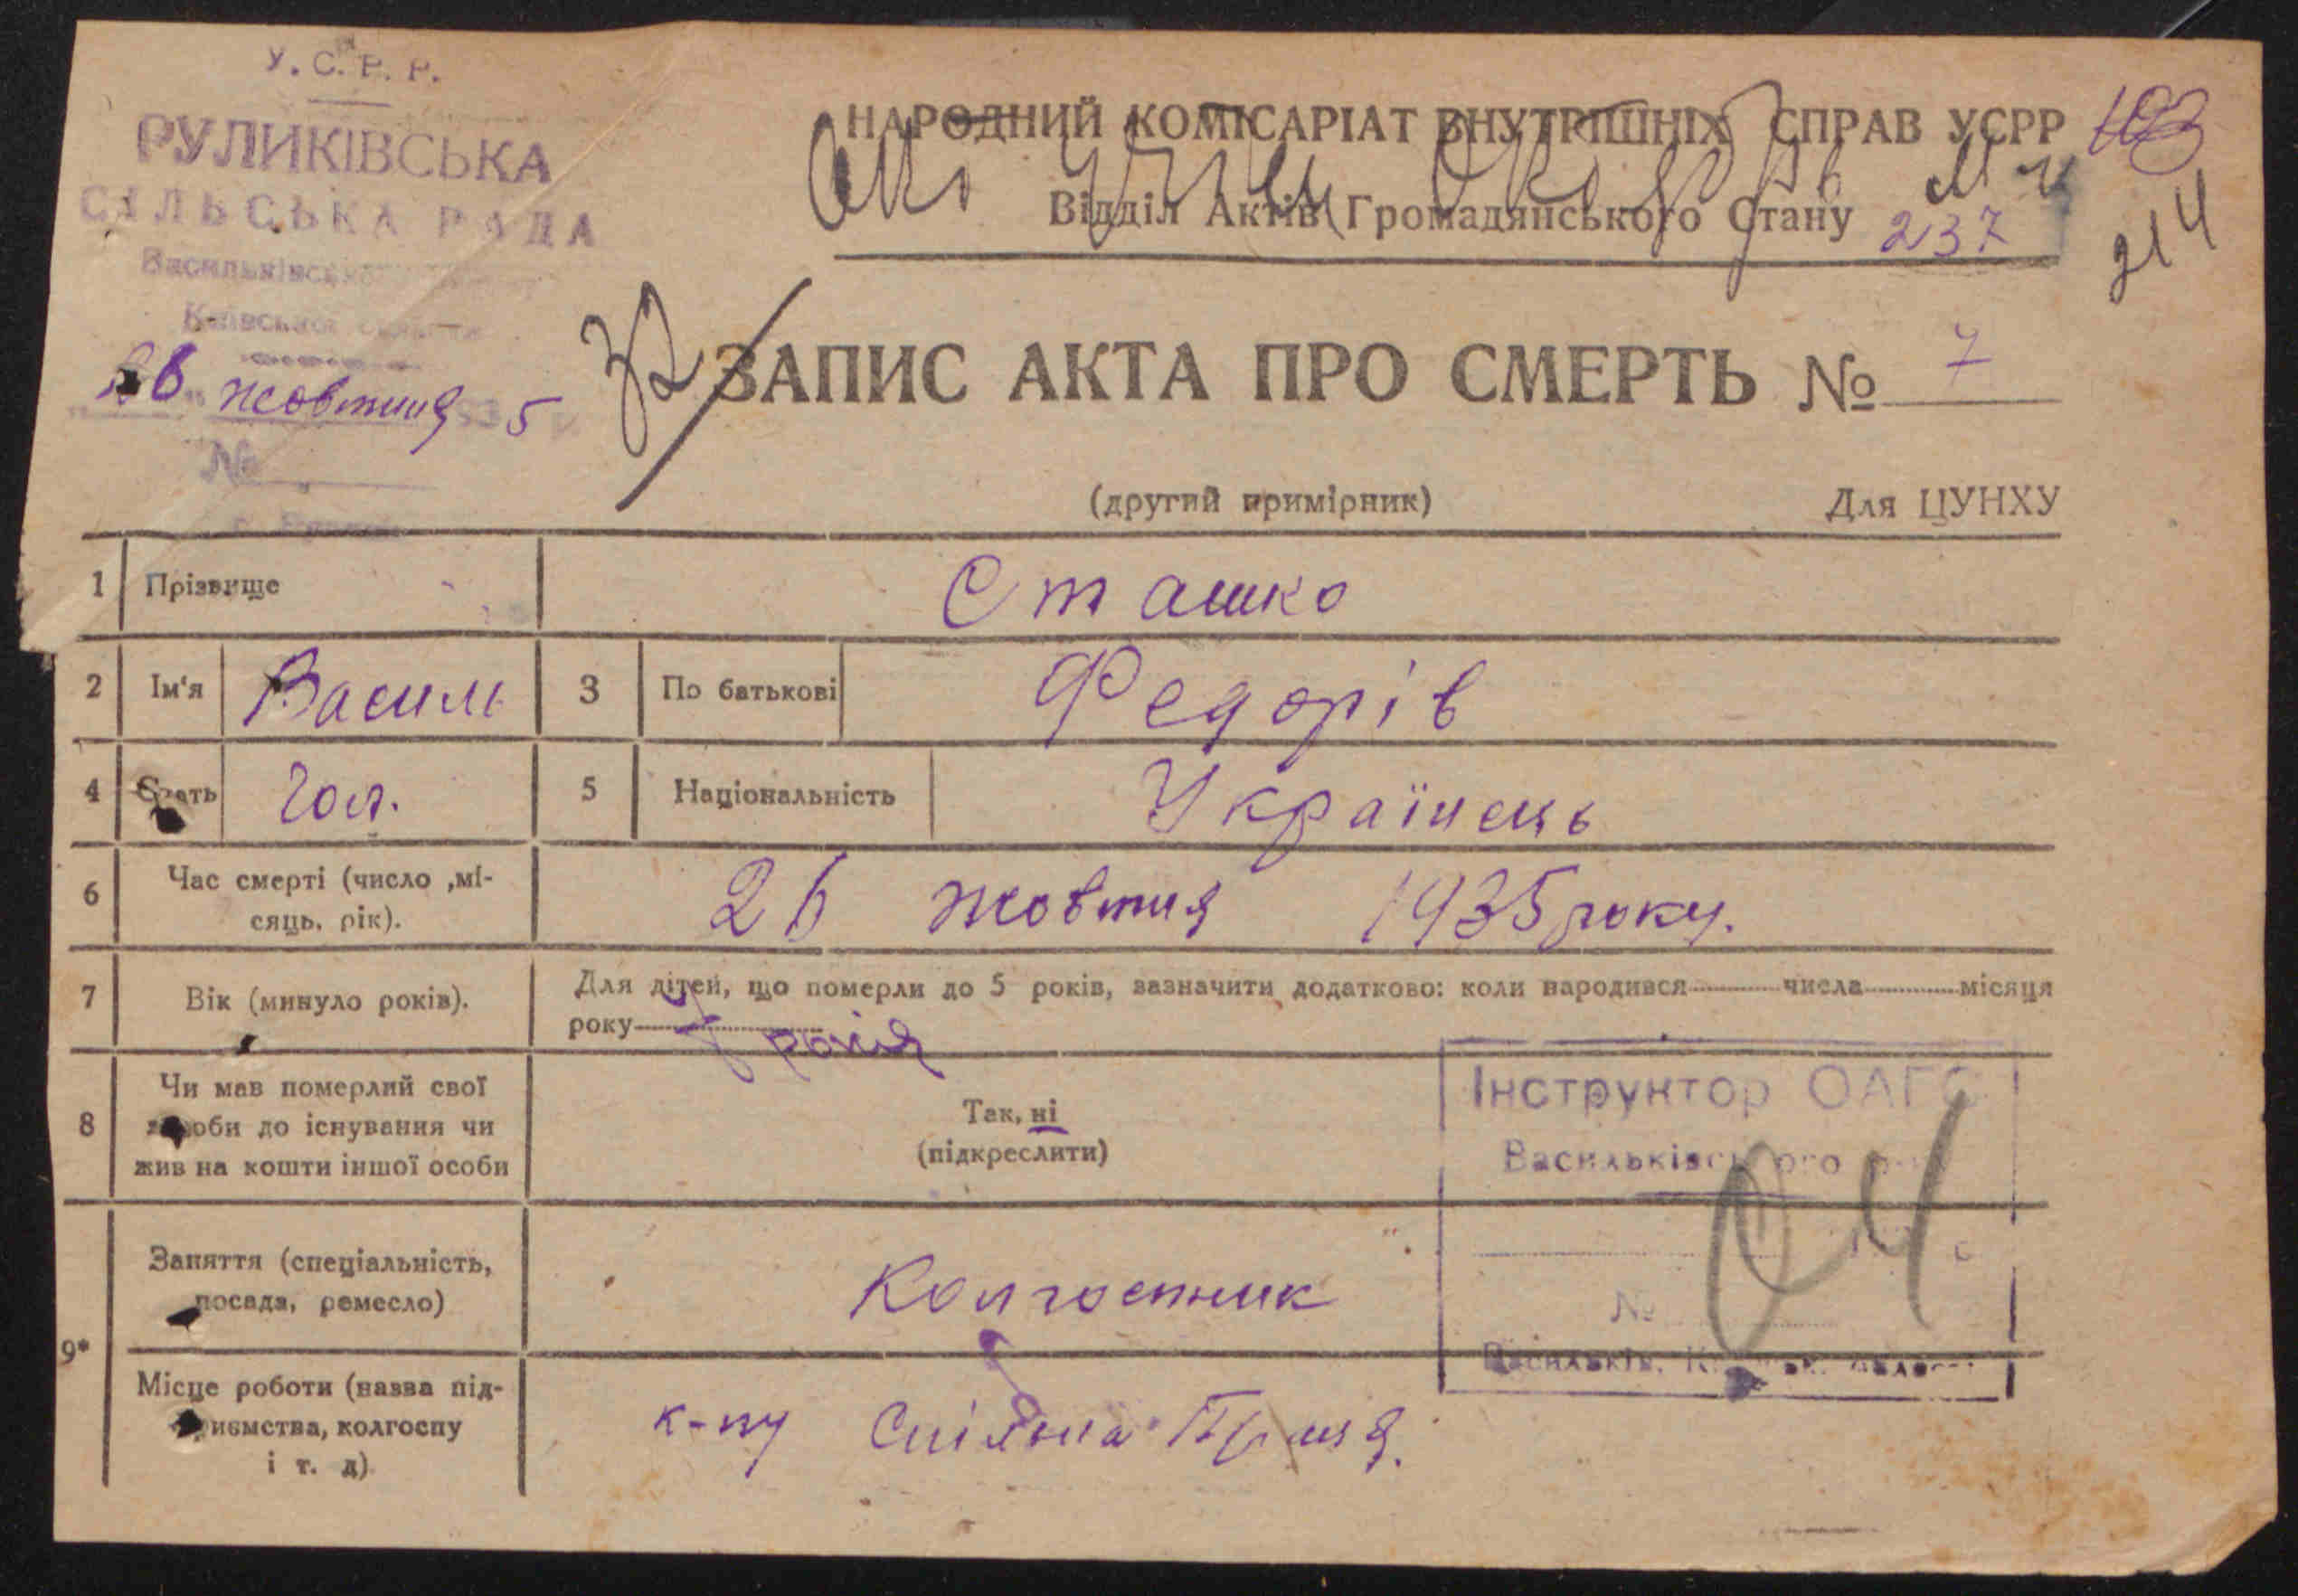 У. С. Р. Р.
РУЛИКІВСЬКА
СІЛЬСЬКА РАДА
Васильківського
Київської області
26 жовтня 5
№
НАРОДНИЙ КОМІСАРІАТ ВНУТРІШНІХ СПРАВ УСРР 103
Відділ Актів Громадянського Стану 237
214
32
ЗАПИС АКТА ПРО СМЕРТЬ № 7
(другий примірник) Для ЦУНХУ
1 Прізвище Сташко
2 Ім'я Василь 3 По батькові Федорів
4 Стать Чол. 5 Національність Українець
6 Час смерті (число ,мі-
сяць, рік). 26 жовтня 1935 року.
7 Вік (минуло років). Для дітей, що померли до 5 років, зазначити додатково: коли народився числа місяця
року 7 років
8 Чи мав померлий свої
засоби до існування чи
жив на кошти іншої особи
Так, ні
(підкреслити)
Інструктор ОАГС
Васильківського
№
Васильків, Київськ. області
04
9* Заняття (спеціальність,
посада, ремесло) Колгоспник
Місце роботи (назва під-
приємства, колгоспу
і т. д) к-пу Спільна Праця.